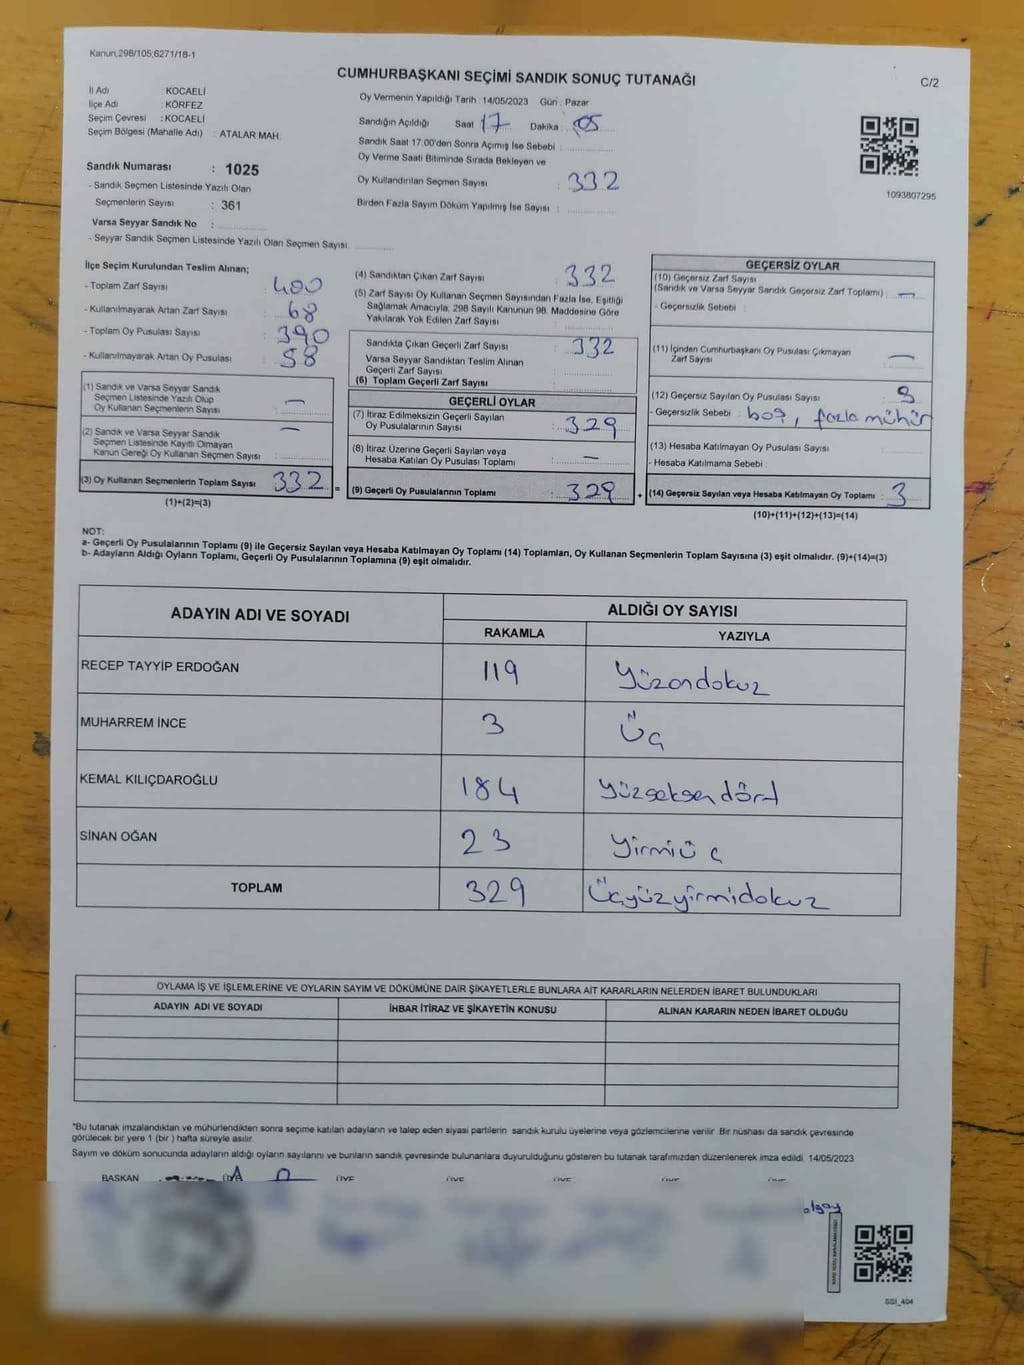 Kanun;298/105;6271/18-1
CUMHURBAŞKANI SEÇİMİ SANDIK SONUÇ TUTANAĞI
C/2
İl Adı : KOCAELİ
İlçe Adı : KÖRFEZ
Seçim Çevresi : KOCAELİ
Seçim Bölgesi (Mahalle Adı) : ATALAR MAH.
Sandık Numarası : 1025
- Sandık Seçmen Listesinde Yazılı Olan
Seçmenlerin Sayısı : 361
Varsa Seyyar Sandık No :
- Seyyar Sandık Seçmen Listesinde Yazılı Olan Seçmen Sayısı:
Oy Vermenin Yapıldığı Tarih : 14/05/2023 Gün : Pazar
Sandığın Açıldığı Saat 17 Dakika : 05
Sandık Saat 17.00'den Sonra Açmış İse Sebebi :
Oy Verme Saati Bitiminde Sırada Bekleyen ve
Oy Kullandırılan Seçmen Sayısı : 332
Birden Fazla Sayım Döküm Yapılmış İse Sayısı :
1093807295
İlçe Seçim Kurulundan Teslim Alınan;
- Toplam Zarf Sayısı : 400
- Kullanılmayarak Artan Zarf Sayısı : 68
- Toplam Oy Pusulası Sayısı : 390
- Kullanılmayarak Artan Oy Pusulası : 58
(1) Sandık ve Varsa Seyyar Sandık
Seçmen Listesinde Yazılı Olup
Oy Kullanan Seçmenlerin Sayısı : —
(2) Sandık ve Varsa Seyyar Sandık
Seçmen Listesinde Kayıtlı Olmayan
Kanun Gereği Oy Kullanan Seçmen Sayısı : —
(3) Oy Kullanan Seçmenlerin Toplam Sayısı 332 =
(1)+(2)=(3)
(4) Sandıktan Çıkan Zarf Sayısı : 332
(5) Zarf Sayısı Oy Kullanan Seçmen Sayısından Fazla İse, Eşitliği
Sağlamak Amacıyla, 298 Sayılı Kanunun 98. Maddesine Göre
Yakılarak Yok Edilen Zarf Sayısı :
Sandıkta Çıkan Geçerli Zarf Sayısı : 332
Varsa Seyyar Sandıktan Teslim Alınan
Geçerli Zarf Sayısı :
(6) Toplam Geçerli Zarf Sayısı
GEÇERLİ OYLAR
(7) İtiraz Edilmeksizin Geçerli Sayılan
Oy Pusulalarının Sayısı : 329
(8) İtiraz Üzerine Geçerli Sayılan veya
Hesaba Katılan Oy Pusulası Toplamı : —
(9) Geçerli Oy Pusulalarının Toplamı : 329 +
GEÇERSİZ OYLAR
(10) Geçersiz Zarf Sayısı
(Sandık ve Varsa Seyyar Sandık Geçersiz Zarf Toplamı) : —
- Geçersizlik Sebebi :
(11) İçinden Cumhurbaşkanı Oy Pusulası Çıkmayan
Zarf Sayısı : —
(12) Geçersiz Sayılan Oy Pusulası Sayısı :
- Geçersizlik Sebebi : boş, fazla mühür
(13) Hesaba Katılmayan Oy Pusulası Sayısı :
- Hesaba Katılmama Sebebi :
(14) Geçersiz Sayılan veya Hesaba Katılmayan Oy Toplamı : 3
(10)+(11)+(12)+(13)=(14)
NOT:
a- Geçerli Oy Pusulalarının Toplamı (9) ile Geçersiz Sayılan veya Hesaba Katılmayan Oy Toplamı (14) Toplamları, Oy Kullanan Seçmenlerin Toplam Sayısına (3) eşit olmalıdır. (9)+(14)=(3)
b- Adayların Aldığı Oyların Toplamı, Geçerli Oy Pusulalarının Toplamına (9) eşit olmalıdır.
ADAYIN ADI VE SOYADI ALDIĞI OY SAYISI
RAKAMLA YAZIYLA
RECEP TAYYİP ERDOĞAN 119 Yüzondokuz
MUHARREM İNCE 3 Üç
KEMAL KILIÇDAROĞLU 184 Yüzseksendört
SİNAN OĞAN 23 Yirmiüç
TOPLAM 329 Üçyüzyirmidokuz
OYLAMA İŞ VE İŞLEMLERİNE VE OYLARIN SAYIM VE DÖKÜMÜNE DAİR ŞİKAYETLERLE BUNLARA AİT KARARLARIN NELERDEN İBARET BULUNDUKLARI
ADAYIN ADI VE SOYADI İHBAR İTİRAZ VE ŞİKAYETİN KONUSU ALINAN KARARIN NEDEN İBARET OLDUĞU
*Bu tutanak imzalandıktan ve mühürlendikten sonra seçime katılan adayların ve talep eden siyasi partilerin sandık kurulu üyelerine veya gözlemcilerine verilir. Bir nüshası da sandık çevresinde
görülecek bir yere 1 (bir ) hafta süreyle asılır.
Sayım ve döküm sonucunda adayların aldığı oyların sayılarını ve bunların sandık çevresinde bulunanlara duyurulduğunu gösteren bu tutanak tarafımızdan düzenlenerek imza edildi. 14/05/2023
BAŞKAN ÜYE ÜYE ÜYE ÜYE ÜYE
SSI_404